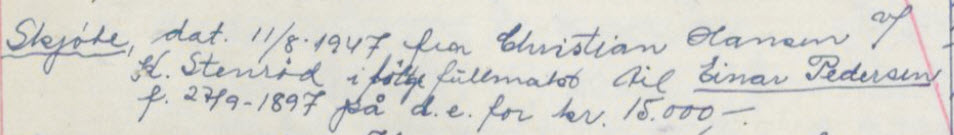 Skjöte, dat. 11/8-1947 fra Christian Hansen v/
K. Stenröd i følge fullmakt til Einar Pedersen
f. 27/9-1897 på d.e. for kr. 15.000 –